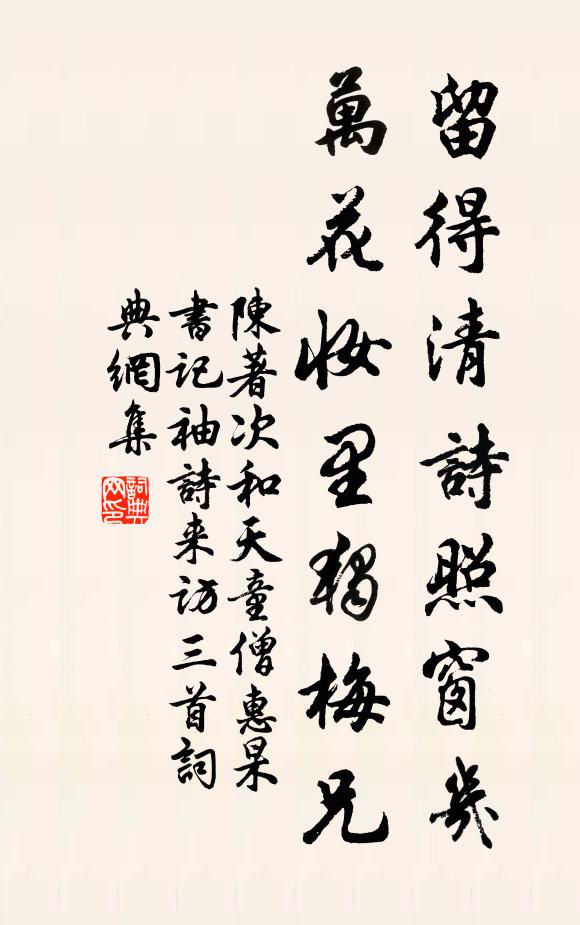 留得清詩照窗幾
萬花妝里獨梅兄
陳著次和天童僧惠杲
書記袖詩来訪三首詞
典網集
詞典网印